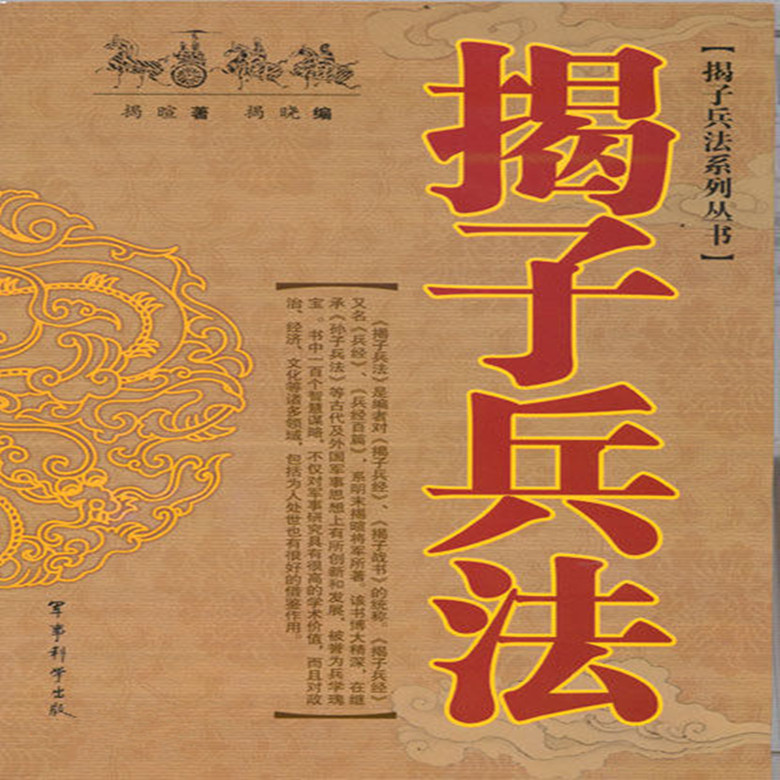 【揭子兵法系列丛书】
揭子兵法
揭暄著 揭晓编
《揭子兵法》是编者对《揭子兵经》、《揭子战书》的统称。《揭子兵经》
又名《兵经》、《兵经百篇》，系明末揭暄将军所著。该书博大精深，在继
承《孙子兵法》等古代及外国军事思想上有所创新和发展，被誉为兵学瑰
宝。书中一百个智慧谋略，不仅对军事研究具有很高的学术价值，而且对政
治、经济、文化等诸多领域，包括为人处世也有很好的借鉴作用。
军事科学出版